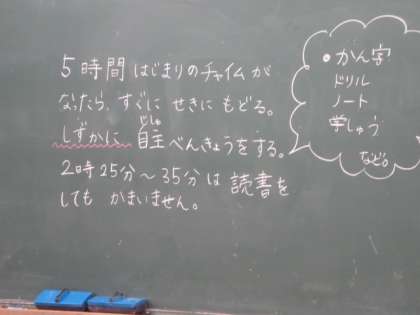 5時間 はじまりのチャイムが
なったら、すぐに せきに もどる。
じしゅ
しずかに 自主べんきょうをする。
2時25分～35分は 読書を
しても かまいません。
・かん字
ドリル
ノート
学しゅう
など。